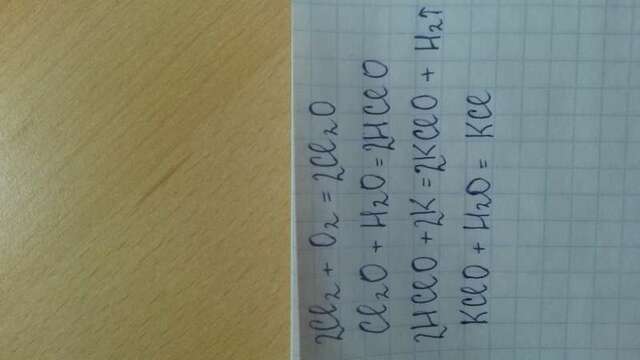 2Cl₂ + O₂ = 2Cl₂O
Cl₂O + H₂O = 2HClO
2HClO + 2K = 2KClO + H₂↑
KClO + H₂O = KCl